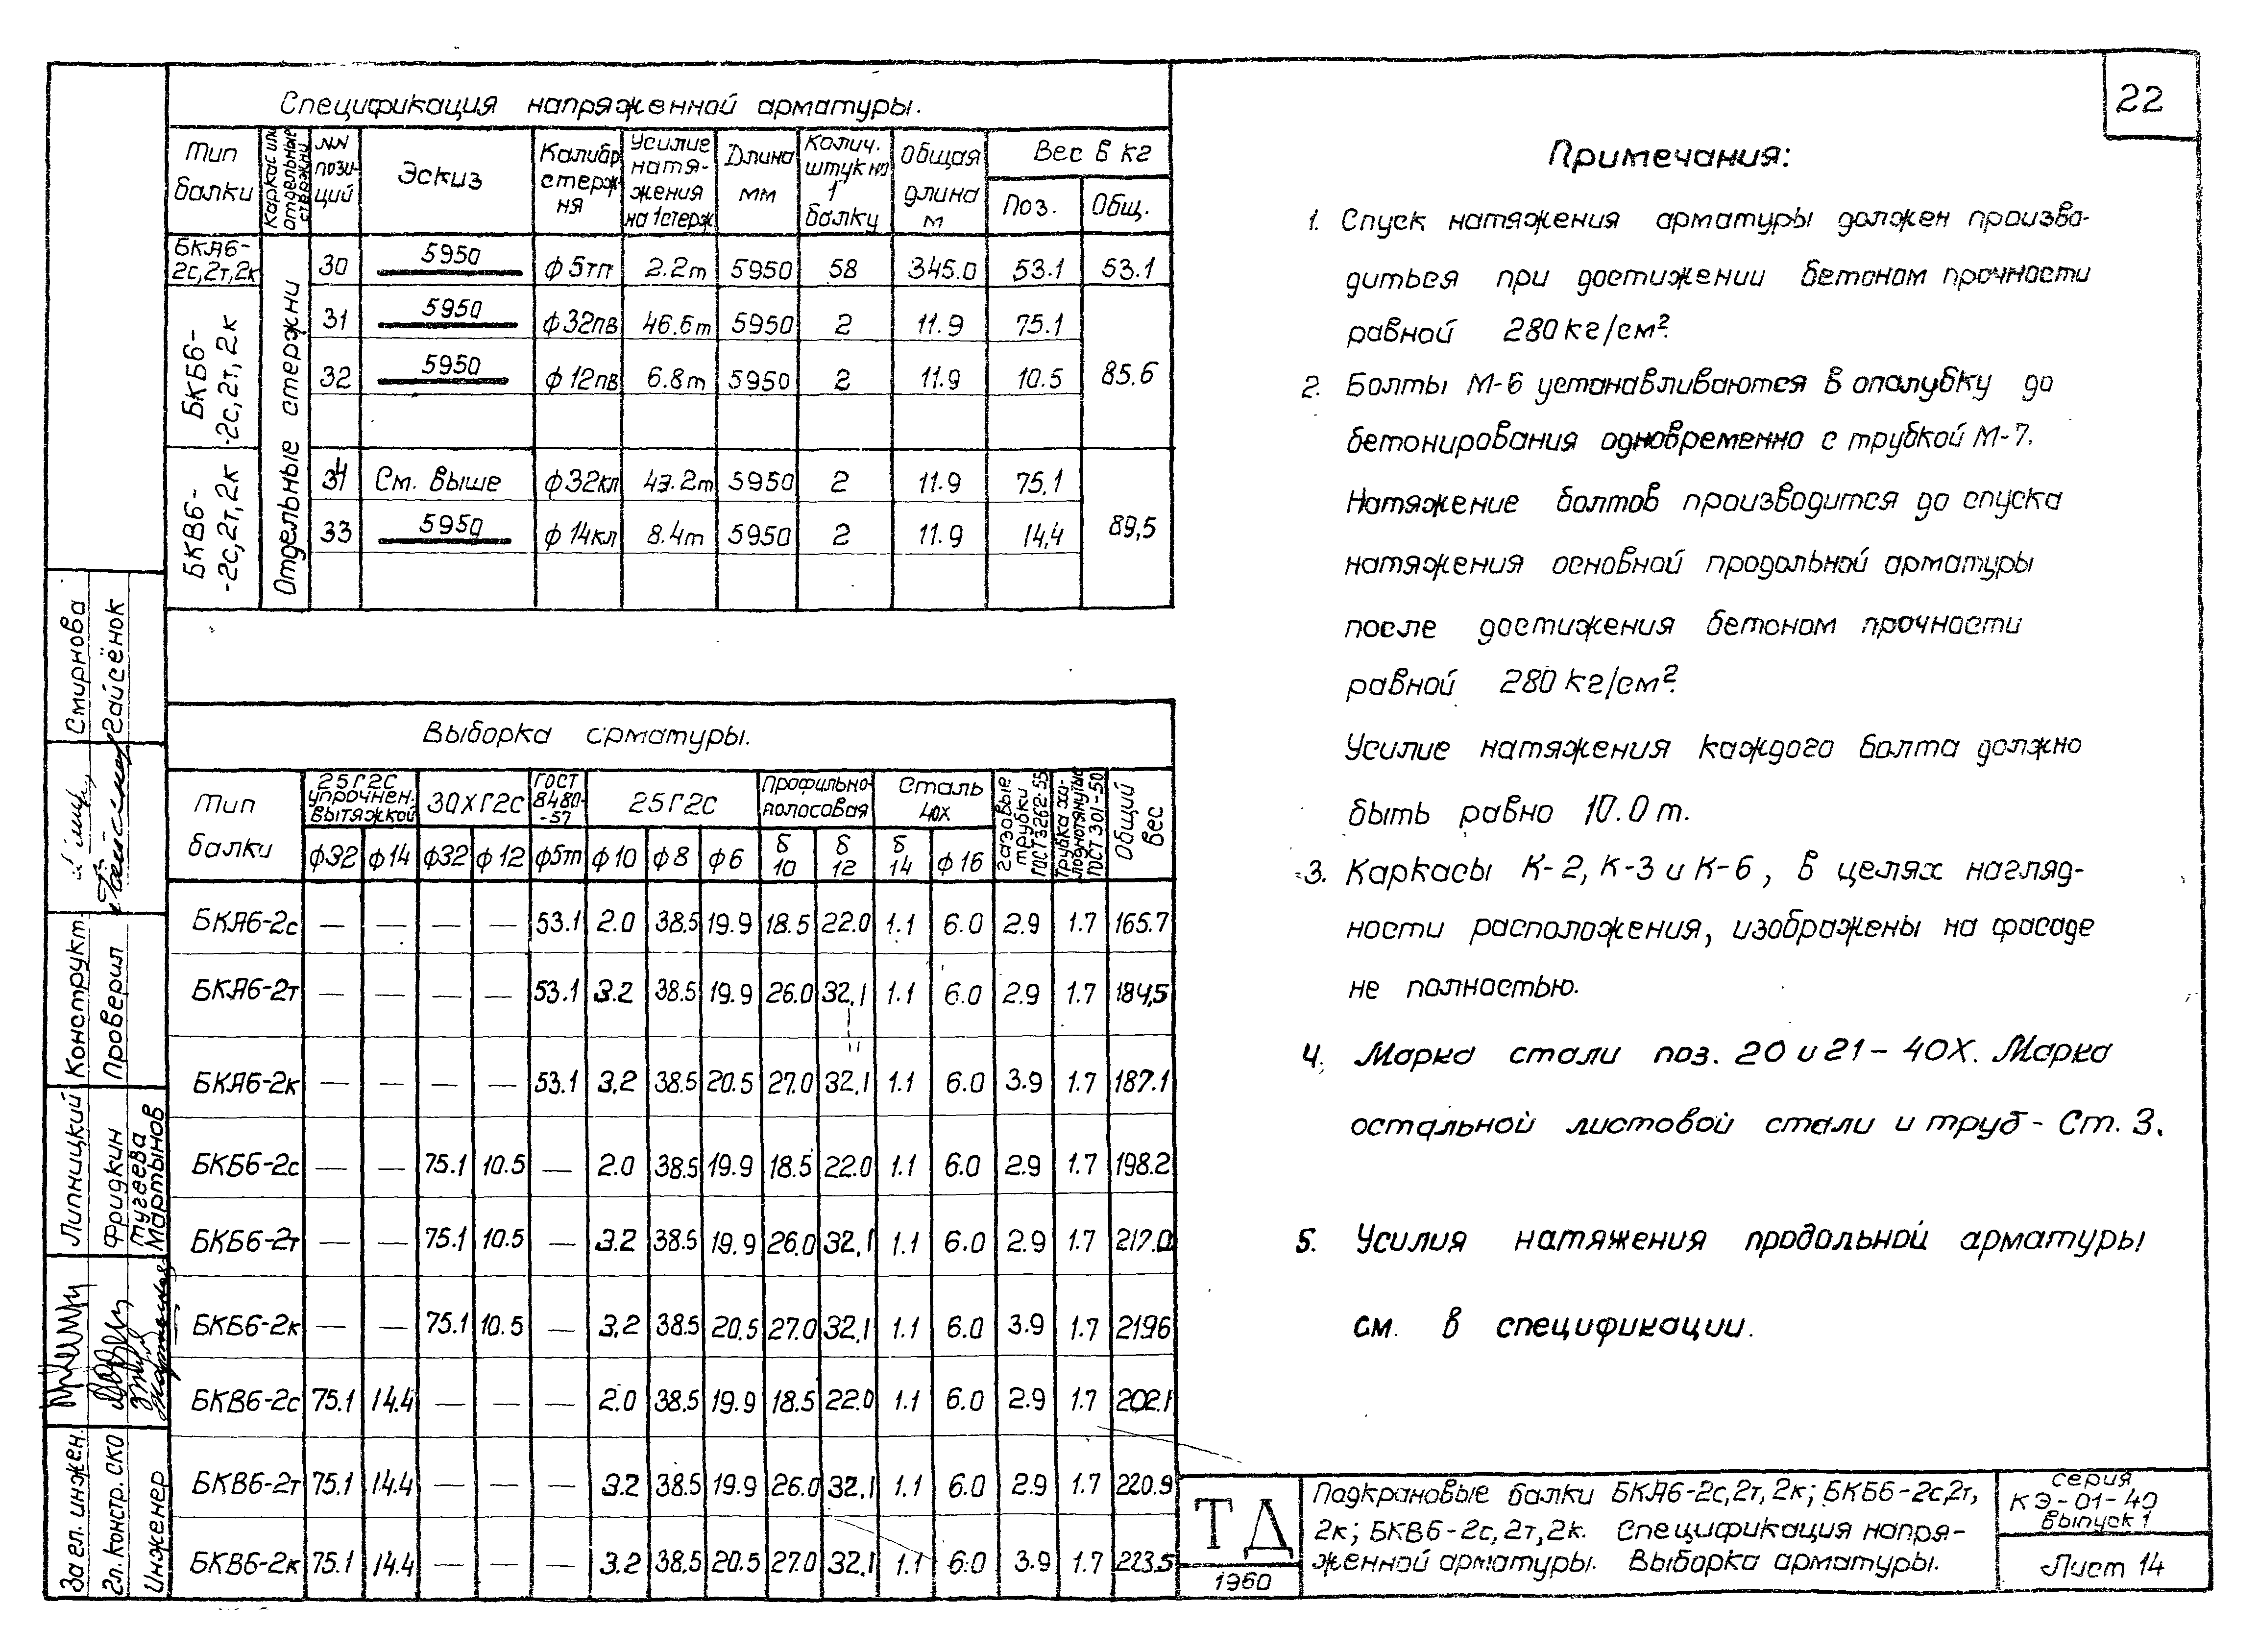 22
Спецификация напряженной арматуры.
Тип балки | Каркас или отдельные стержни | NN позиций | Эскиз | Калибр стержня | Усилие натяжения на 1стерж. | Длина мм | Колич. штук на 1 балку | Общая длина м | Вес в кг
Поз. | Общ.
БКА6-2с,2т,2к | Отдельные стержни | 30 | 5950 | ф5тп | 2.2т | 5950 | 58 | 345.0 | 53.1 | 53.1
БКБ6-2с,2т,2к | 31 | 5950 | ф32пв | 46.6т | 5950 | 2 | 11.9 | 75.1 | 85.6
32 | 5950 | ф12пв | 6.8т | 5950 | 2 | 11.9 | 10.5
БКВ6-2с,2т,2к | См. выше | ф32кл | 5950 | 2 | 11.9 | 75.1 | 89,5
33 | 5950 | ф14кл | 8.4т | 5950 | 2 | 11.9 | 14,4
Выборка арматуры.
Тип балки | 25Г2С упрочнен. вытяжкой | 30ХГ2С | ГОСТ 8480-57 | 25Г2С | Профильно-полосовая | Сталь 40Х | Газовые трубки ГОСТ 3262-55 | Трубка холоднотянутые ГОСТ 301-50 | Общий вес
ф32 | ф14 | ф32 | ф12 | ф5тп | ф10 | ф8 | ф6 | δ 10 | δ 12 | δ 14 | ф16
БКА6-2с | — | — | — | — | 53.1 | 2.0 | 38.5 | 19.9 | 18.5 | 22.0 | 1.1 | 6.0 | 2.9 | 1.7 | 165.7
БКА6-2т | — | — | — | — | 53.1 | 3.2 | 38.5 | 19.9 | 26.0 | 32.1 | 1.1 | 6.0 | 2.9 | 1.7 | 184,5
БКА6-2к | — | — | — | — | 53.1 | 3.2 | 38.5 | 20.5 | 27.0 | 32.1 | 1.1 | 6.0 | 3.9 | 1.7 | 187.1
БКБ6-2с | — | — | 75.1 | 10.5 | — | 2.0 | 38.5 | 19.9 | 18.5 | 22.0 | 1.1 | 6.0 | 2.9 | 1.7 | 198.2
БКБ6-2т | — | — | 75.1 | 10.5 | — | 3.2 | 38.5 | 19.9 | 26.0 | 32.1 | 1.1 | 6.0 | 2.9 | 1.7 | 217.0
БКБ6-2к | — | — | 75.1 | 10.5 | — | 3.2 | 38.5 | 20.5 | 27.0 | 32.1 | 1.1 | 6.0 | 3.9 | 1.7 | 219.6
БКВ6-2с | 75.1 | 14.4 | — | — | — | 2.0 | 38.5 | 19.9 | 18.5 | 22.0 | 1.1 | 6.0 | 2.9 | 1.7 | 202.1
БКВ6-2т | 75.1 | 14.4 | — | — | — | 3.2 | 38.5 | 19.9 | 26.0 | 32.1 | 1.1 | 6.0 | 2.9 | 1.7 | 220.9
БКВ6-2к | 75.1 | 14.4 | — | — | — | 3.2 | 38.5 | 20.5 | 27.0 | 32.1 | 1.1 | 6.0 | 3.9 | 1.7 | 223.5
Примечания:
1. Спуск натяжения арматуры должен произво-
диться при достижении бетоном прочности
равной 280кг/см².
2. Болты М-6 устанавливаются в опалубку до
бетонирования одновременно с трубкой М-7.
Натяжение болтов производится до спуска
натяжения основной продольной арматуры
после достижения бетоном прочности
равной 280кг/см².
Усилие натяжения каждого болта должно
быть равно 10.0т.
3. Каркасы К-2, К-3 и К-6, в целях нагляд-
ности расположения, изображены на фасаде
не полностью.
4. Марка стали поз. 20 и 21 - 40Х. Марка
остальной листовой стали и труб - Ст. 3.
5. Усилия натяжения продольной арматуры
см. в спецификации.
Смирнова
Гайсёнок
Конструкт.
Проверил
Липницкий
Фридкин
Тугеева
Мартынов
За гл. инжен.
Гл. констр. СКО
Инженер
ТД
1960
Подкрановые балки БКА6-2с,2т,2к; БКБ6-2с,2т,
2к; БКВ6-2с,2т,2к. Спецификация напря-
женной арматуры. Выборка арматуры.
серия
КЭ-01-40
выпуск 1
Лист 14